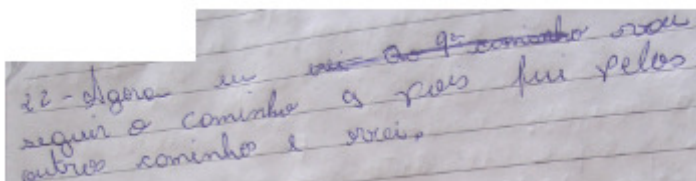 22 - Agora eu vou
seguir o caminho 9 pois fui pelos
outros caminho e errei.